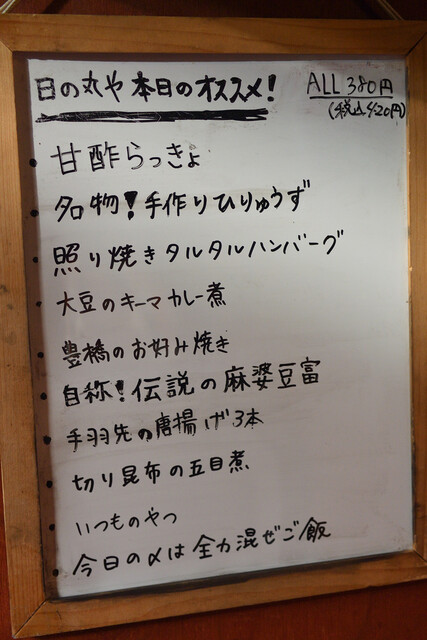 日の丸や本日のオススメ!
ALL 380円
(税込420円)
甘酢らっきょ
名物!手作りひりゅうず
照り焼きタルタルハンバーグ
大豆のキーマカレー煮
豊橋のお好み焼き
自称!伝説の麻婆豆富
手羽先の唐揚げ3本
切り昆布の五目煮
いつものやつ
今日の〆は全力混ぜご飯